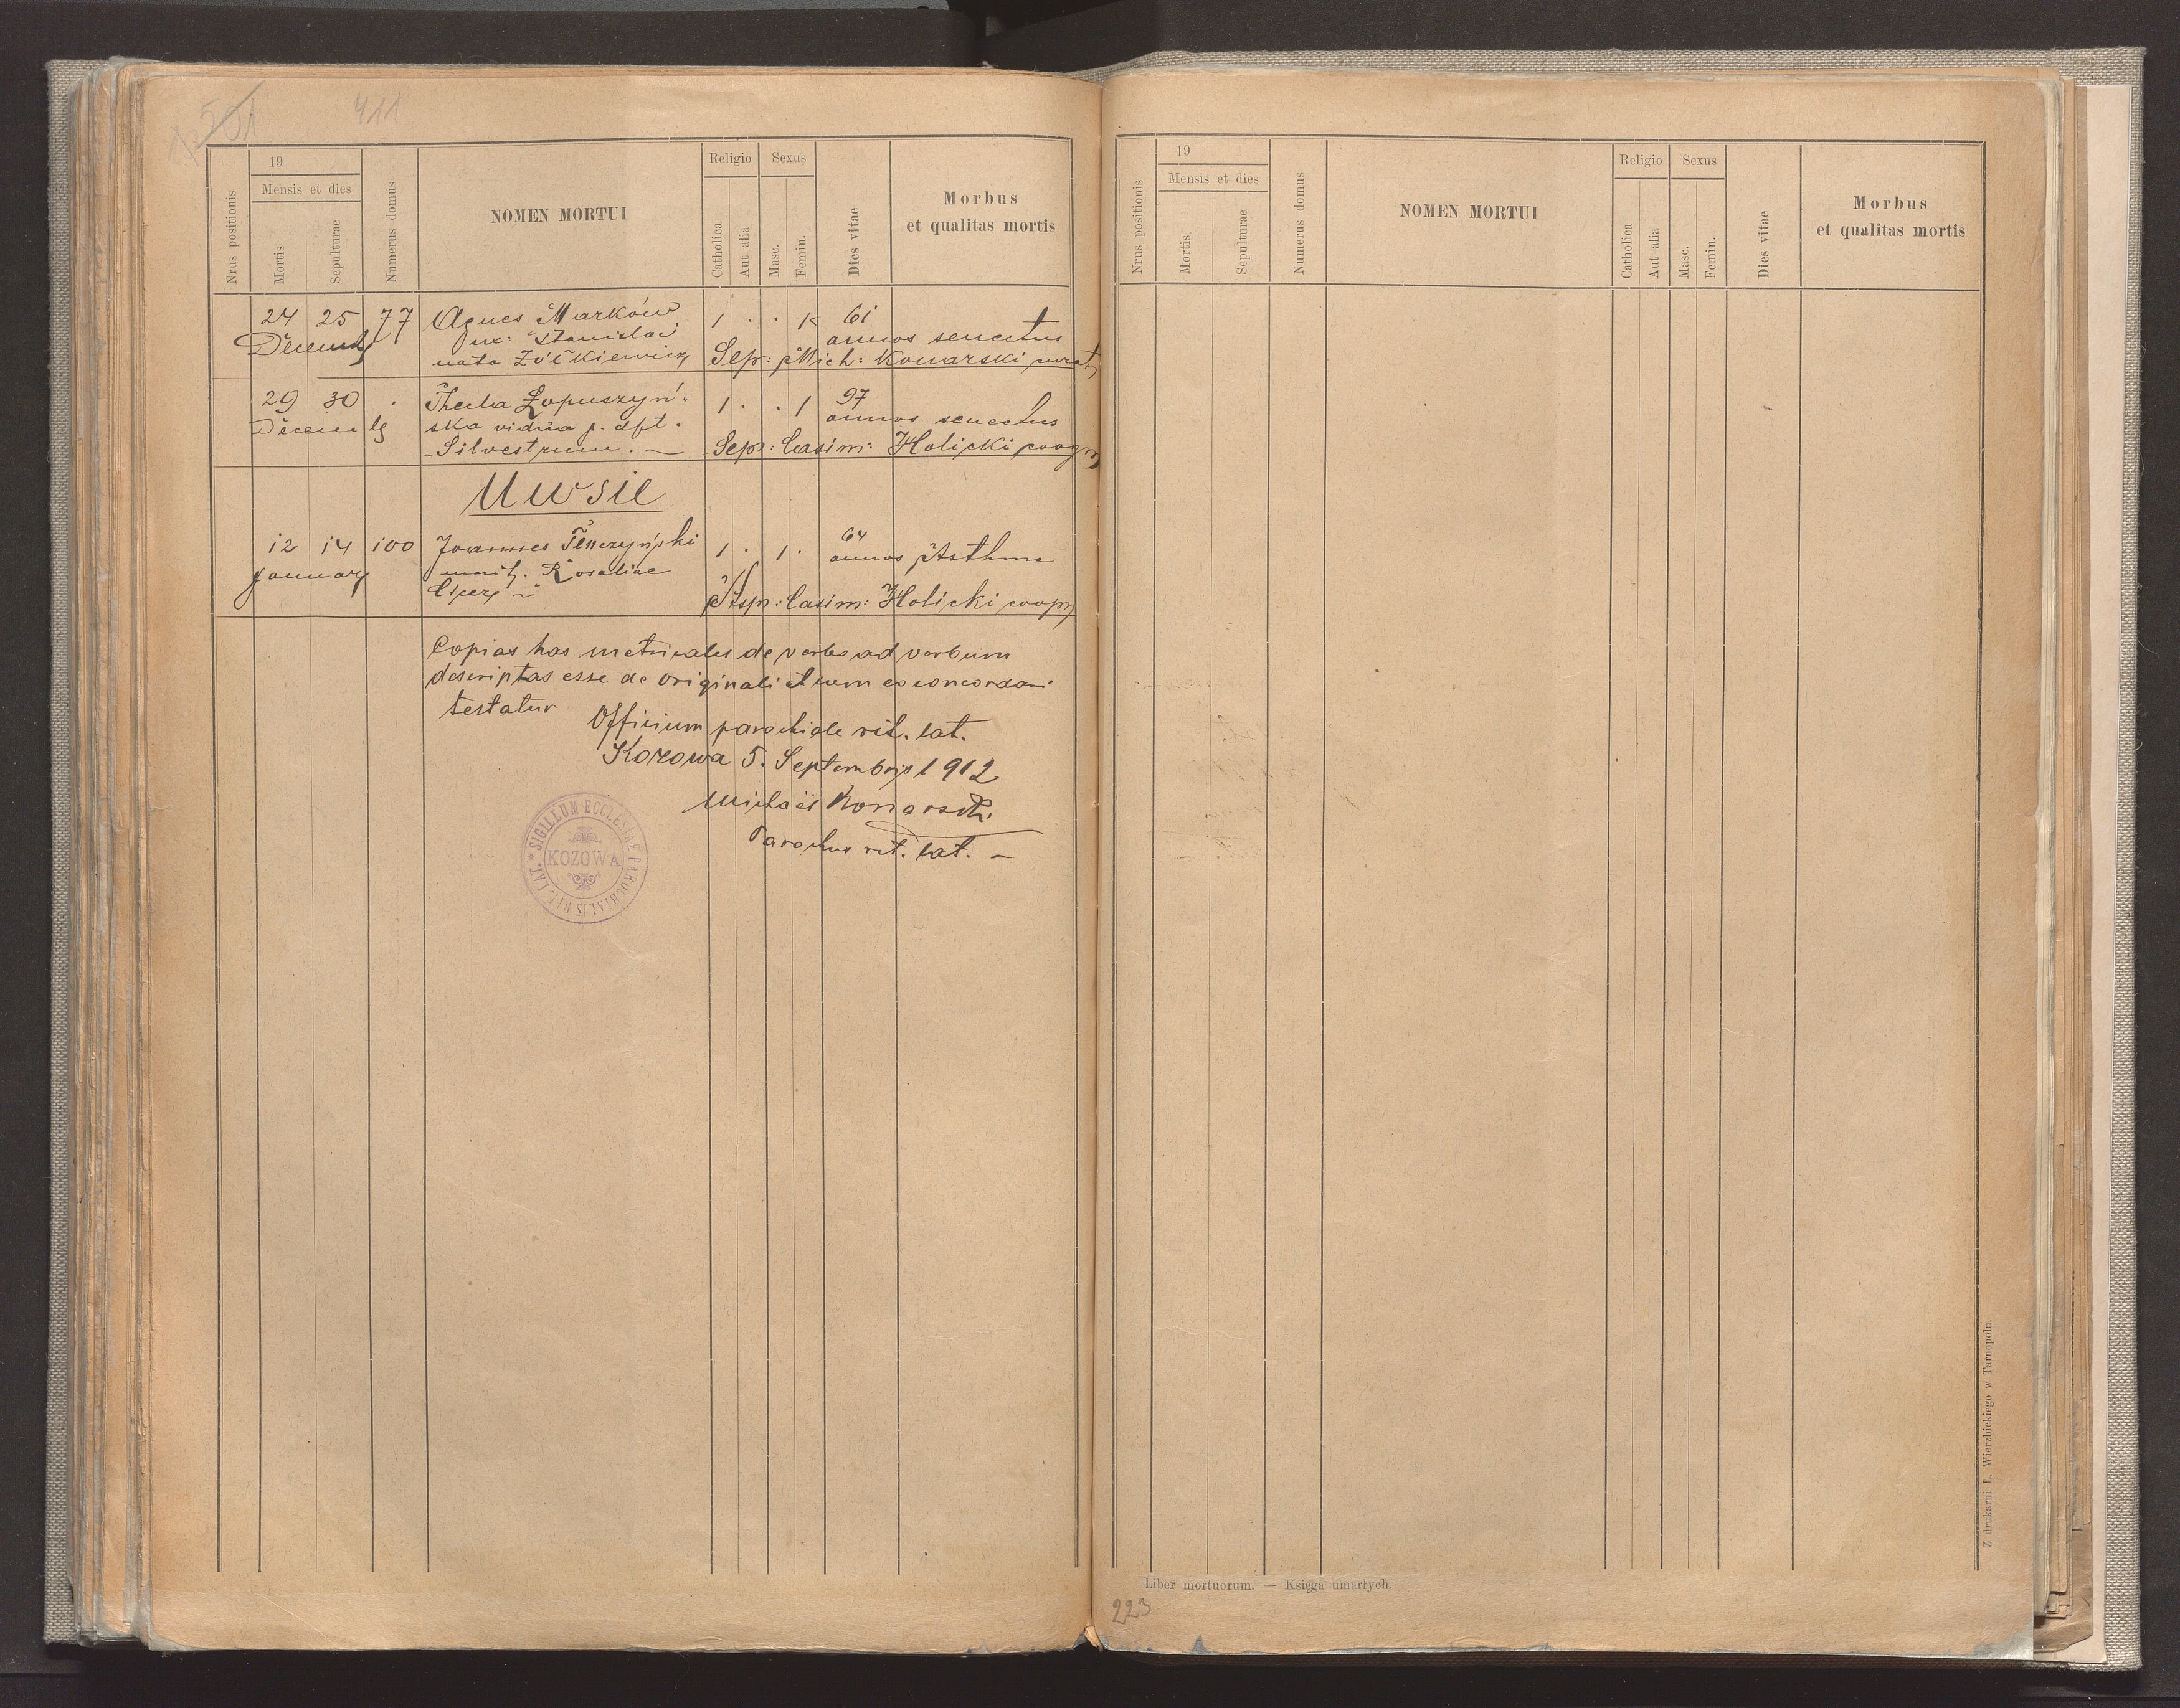 501
411
19
Mensis et dies
Nrus positionis
Mortis
Sepulturae
Numerus domus
NOMEN MORTUI
Religio
Catholica
Aut alia
Sexus
Masc.
Femin.
Dies vitae
Morbus
et qualitas mortis
24 25 77 Agnes Marków 1 . . 1 61
Decembris ux: Stanislai annos senectus
nata Żółkiewicz Sep: Mich: Konarski
29 30 . Thecla Łopuszyń- 1 . . 1 97
Decembris ska vidua p. dft. annos senectus
Silvestrum. — Sep: Casim: Holicki
Uwsie
12 14 100 Joannes Tenczyński 1 . 1 . 64
January marit. Rosaliae annos Asthma
Asp: Casim: Holicki
Copias has metricales de verbo ad verbum
descriptas esse de originali et cum eo concordari
testatur
Officium parochiale rit. lat.
Kozowa 5. Septembris 1912
Michaël Konarski
Parochus rit. lat. —
SIGILLUM ECCLESIAE PAROCHIALIS RIT. LAT.
KOZOWA
19
Mensis et dies
Nrus positionis
Mortis
Sepulturae
Numerus domus
NOMEN MORTUI
Religio
Catholica
Aut alia
Sexus
Masc.
Femin.
Dies vitae
Morbus
et qualitas mortis
Z drukarni L. Wierzbickiego w Tarnopolu.
Liber mortuorum. — Księga umarłych.
223